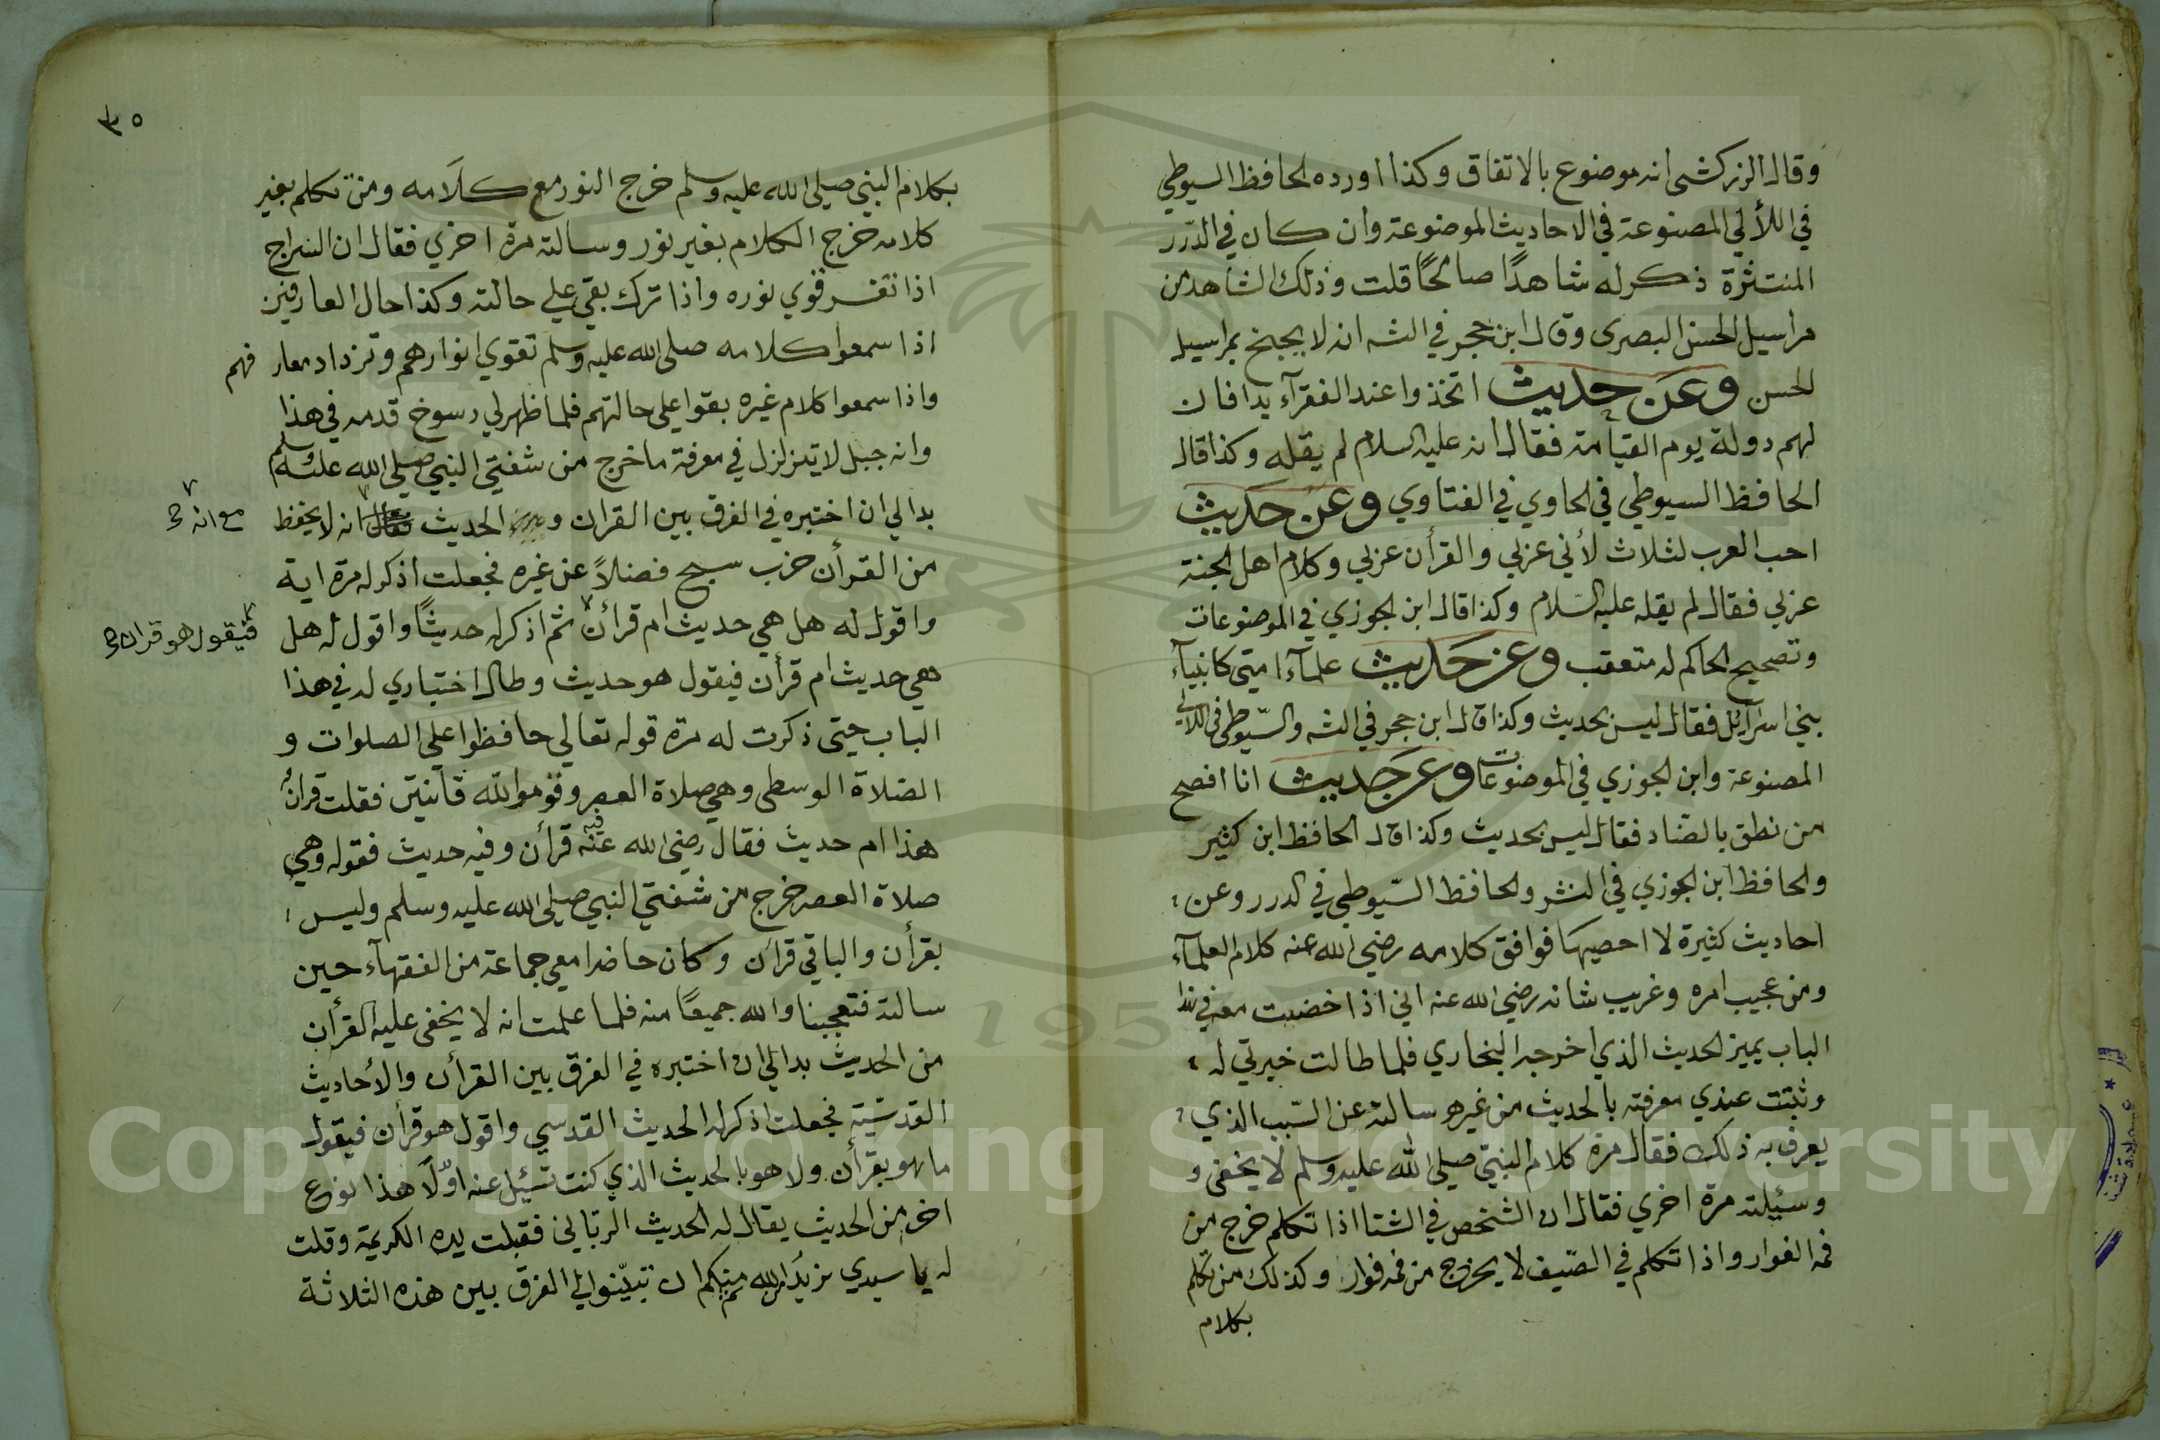 وقال الزركشي انه موضوع بالاتفاق وكذا اورده الحافظ السيوطي
في اللألي المصنوعة في الاحاديث الموضوعة وان كان في الدّرر
المنتثرة ذكر له شاهدًا صالحًا قلت وذلك الشاهد من
مراسيل الحسن البصرى وقال ابن حجر في الشه انه لا يحتج بمراسيل
الحسن وعن حديث اتخذوا عند الفقرآء يدا فان
لهم دولة يوم القيامة فقال انه عليه السلام لم يقله وكذا قال
الحافظ السيوطي في الحاوي في الفتاوي وعن حديث
احب العرب لثلاث لأني عربي والقرأن عربي وكلام اهل الجنة
عربي فقال لم يقله عليه السّلام وكذا قال ابن الجوزي في الموضوعات
وتصحيح الحاكم له متعقب وعن حديث علمآء امتي كانبيآء
بني اسرآئل فقال ليس بحديث وكذا قال ابن حجر في الشه والسّيوطي في اللالي
المصنوعة وابن الجوزي في الموضوعات وعن حديث انا افصح
من نطق بالضاد فقال ليس بحديث وكذا قال الحافظ ابن كثير
والحافظ ابن الجوزي في النشر والحافظ السّيوطي في الدرر وعن
احاديث كثيرة لا احصيها فوافق كلامه رضي الله عنه كلام العلمآء
ومن عجيب امره وغريب شانه رضي الله عنه اني اذا خضت معه في هذا
الباب يميز الحديث الذي اخرجه البخاري فلما طالت خبرتي له
وثبتت عندي معرفته بالحديث من غيره سالته عن السّبب الذي
يعرف به ذلك فقال مرة كلام النبيّ صلى الله عليه وسلم لا يخفى و
وسئيلته مرة اخري فقال ان الشخص في الشتا اذا تكلم خرج من
فمه الفوار واذا تكلم في الصّيف لا يخرج من فمه فوار وكذلك من تكلم
بكلام
٣٥
بكلام النبي صلى الله عليه وسلم خرج النور مع كلامه ومن تكلم بغير
كلامه خرج الكلام بغير نور وسالته مرة اخري فقال ان السراج
اذا نغز قوي نوره واذا ترك بقي على حالته وكذا حال العارفين
اذا سمعوا كلامه صلى الله عليه وسلم تقوي انوارهم وتزداد معار فهم
واذا سمعوا كلام غيره بقوا على حالتهم فلما ظهر لي رسوخ قدمه في هذا
وانه جبل لا يتزلزل في معرفة ما خرج من شفتي النبي صلى الله عليه وسلم
بدا لي ان اختبره في الفرق بين القران و الحديث انه لا يحفظ
مع انه
من القرأن حزب سبح فضلاً عن غيره فجعلت اذكر له مرة اية
واقول له هل هي حديث ام قرأن ثم اذكر له حديثًا واقول له هل
فيقول هو قران
هي حديث ام قرأن فيقول هو حديث وطال اختباري له في هذا
الباب حتى ذكرت له مرة قوله تعالي حافظوا على الصلوات و
الصّلاة الوسطى وهي صلاة العصر وقوموا لله قانتين فقلت قرأن
هذا ام حديث فقال رضي الله عنه فيه قرأن وفيه حديث فقوله وهي
صلاة العصر خرج من شفتي النبي صلى الله عليه وسلم وليس
بقرأن والباقي قرأن وكان حاضرا معي جماعة من الفقهآء حين
سالته فتعجبنا والله جميعًا منه فلما علمت انه لا يخفى عليه القرأن
من الحديث بدا لي ان اختبره في الفرق بين القرأن والأحاديث
القدسّية فجعلت اذكر له الحديث القدسي واقول هو قرأن فيقول
ما هو بقرأن ولا هو بالحديث الذي كنت تسئيل عنه اوّلا هذا نوع
اخر من الحديث يقال له الحديث الربّاني فقبلت يده الكريمة وقلت
له يا سيدي نريد من الله ثم منكم ان تبيّنوا لي الفرق بين هذه الثلاثة
Copyright © King Saud University
195